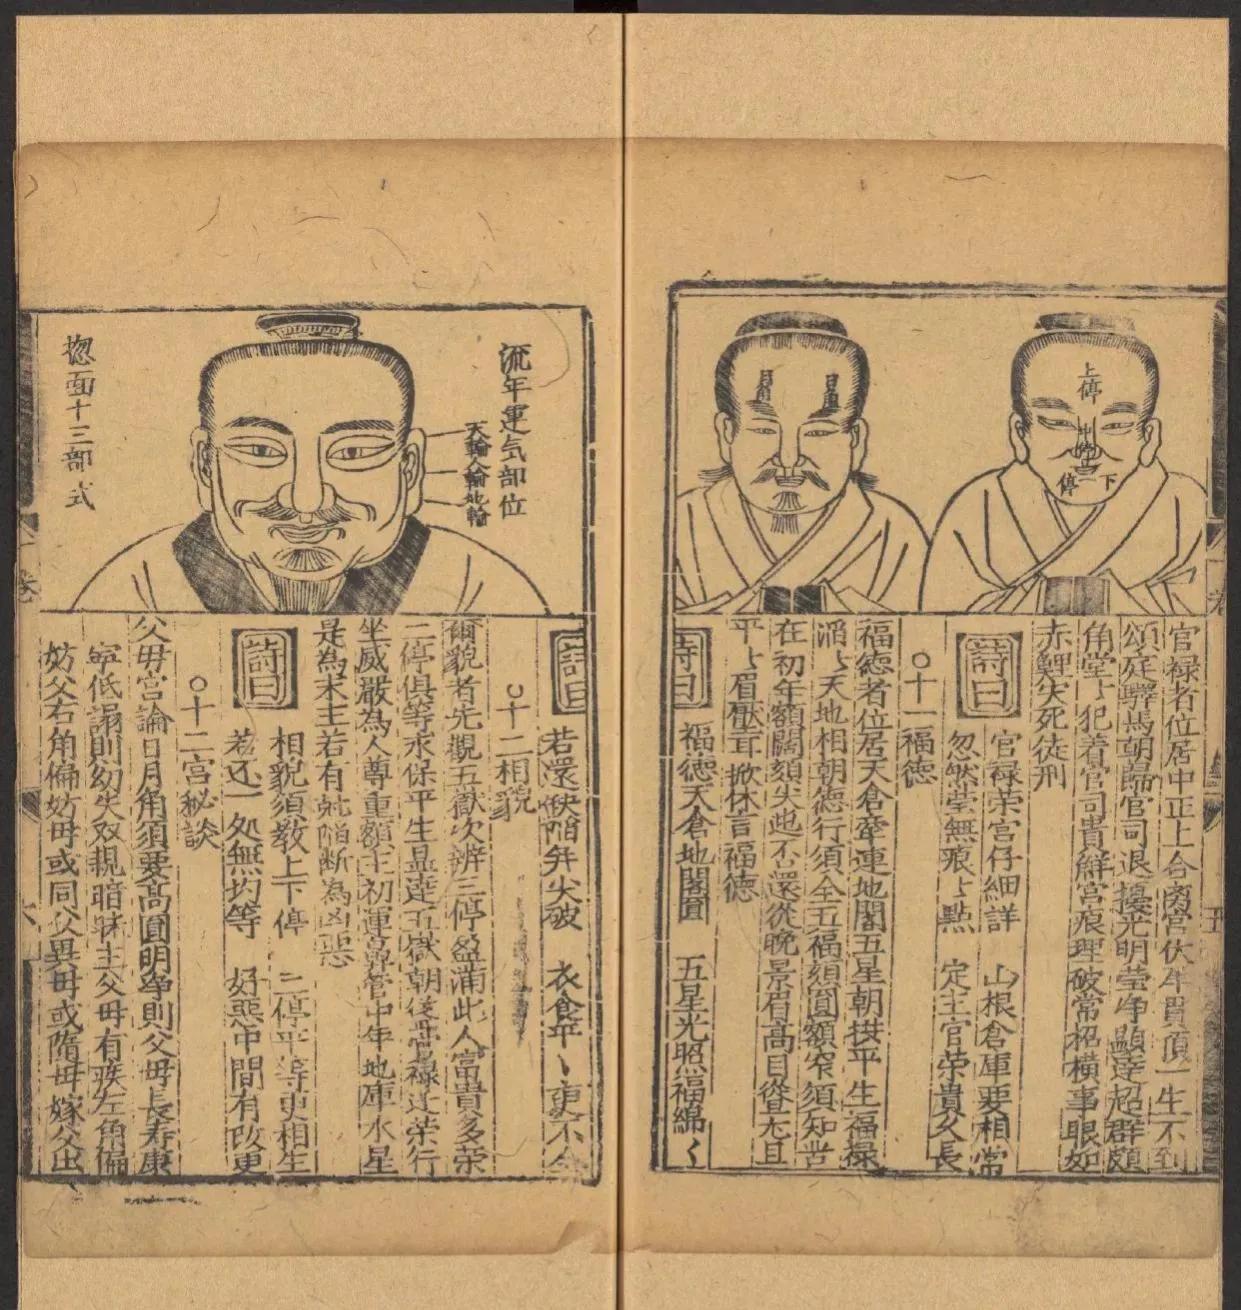 上停
中停
下停
官禄者位居中正上合离宫伏犀貫頂一生不到
訟庭驛馬朝歸官司退擾光明瑩净顯達超群額
角堂々犯着官司貴觧宫痕理破常招横事眼如
赤鯉失死徒刑
詩曰
官禄荣宫仔細詳 山根倉庫要相當
忽然瑩無痕々點 定主官荣貴久長
○十一福德
福德者位居天倉牽連地閣五星朝拱平生福禄
滔々天地相朝德行須全五福頦圓額窄須知苦
在初年額闊頦尖迍否還從晚景眉高目聳尤且
平々眉壓耳掀休言福德
詩曰 福德天倉地閣圓 五星光照福綿々
五
流年運气部位
天輪
人輪
地輪
揔面十三部式
詩曰 若還缺陷并尖破 衣食平々更不全
○十二相貌
爾貌者先觀五嶽次辨三停盈滿此人富貴多荣
三停俱等永保平生显達五嶽朝後官禄迁荣行
坐威嚴為人尊重額主初運鼻管中年地庫水星
是為末主若有尅陷断為凶惡
詩曰
相貌須教上下停 三停平等更相生
若还一処無均等 好惡中間有改更
○十二宫秘談
父母宫論日月角須要高圓明净則父母長寿康
寧低漏則幼失双親暗昧主父母有疾左角偏
妨父右角偏妨母或同父異母或隋母嫁父出
卷
六